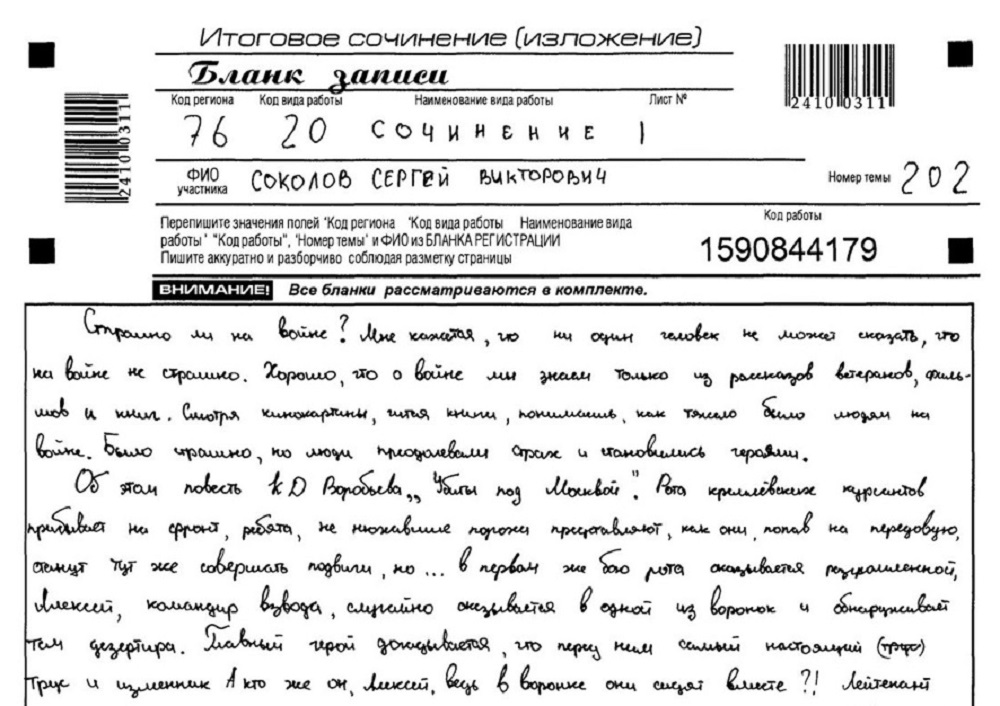 Итоговое сочинение (изложение)
Бланк записи
Код региона Код вида работы Наименование вида работы Лист №
76 20 СОЧИНЕНИЕ 1
ФИО участника СОКОЛОВ СЕРГЕЙ ВИКТОРОВИЧ Номер темы 202
Перепишите значения полей "Код региона "Код вида работы Наименование вида
работы" "Код работы", "Номер темы" и ФИО из БЛАНКА РЕГИСТРАЦИИ
Пишите аккуратно и разборчиво соблюдая разметку страницы
Код работы
1590844179
ВНИМАНИЕ! Все бланки рассматриваются в комплекте.
2410 0311
2410 0311
Страшно ли на войне? Мне кажется, что ни один человек не может сказать, что
на войне не страшно. Хорошо, что о войне мы знаем только из рассказов ветеранов, филь-
мов и книг. Смотря кинокартины, читая книги, понимаешь, как тяжело было людям на
войне. Было страшно, но люди преодолевали страх и становились героями.
Об этом повесть К Д Воробьева „Убиты под Москвой". Рота кремлёвских курсантов
прибывает на фронт, ребята, не нюхавшие пороха представляют, как они, попав на передовую,
станут тут же совершать подвиги, но ... в первом же бою рота оказывается разгромленной,
Алексей, командир взвода, случайно оказывается в одной из воронок и обнаруживает
там дезертира. Главный герой догадывается, что перед ним самый настоящий (трус)
трус и изменник А кто же он, Алексей, ведь в воронке они сидят вместе?! Лейтенант